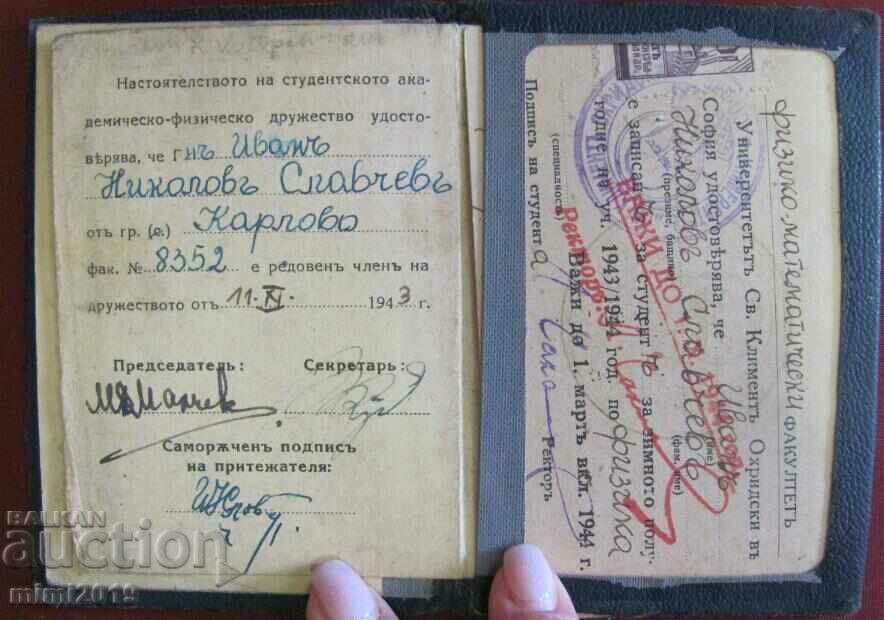 Настоятелството на студентското ака-
демическо-физическо дружество удосто-
вѣрява, че Г нъ Иванъ
Николовъ Славчевъ
отъ гр. (с.) Карлово
фак. № 8352 е редовенъ членъ на
дружеството отъ 11. XI. 1943 г.
Председатель: Секретарь:
Саморѫченъ подпись
на притежателя:
физико-математически ФАКУЛТЕТЪ
Университетътъ Св. Климентъ Охридски въ
София удостовѣрява, че Иванъ
(име)
Николовъ Славчевъ
(презиме, бащино) (фам. име)
е записанъ за студентъ за зимното полу-
годие на уч. 1943/1944 год. по физика
(специалность) Важи до 1. мартъ вкл. 1944 г.
ВАЖИ ДО
Ректоръ:
Подпись на студента Ректоръ
BALKAN
auction
mimi2019